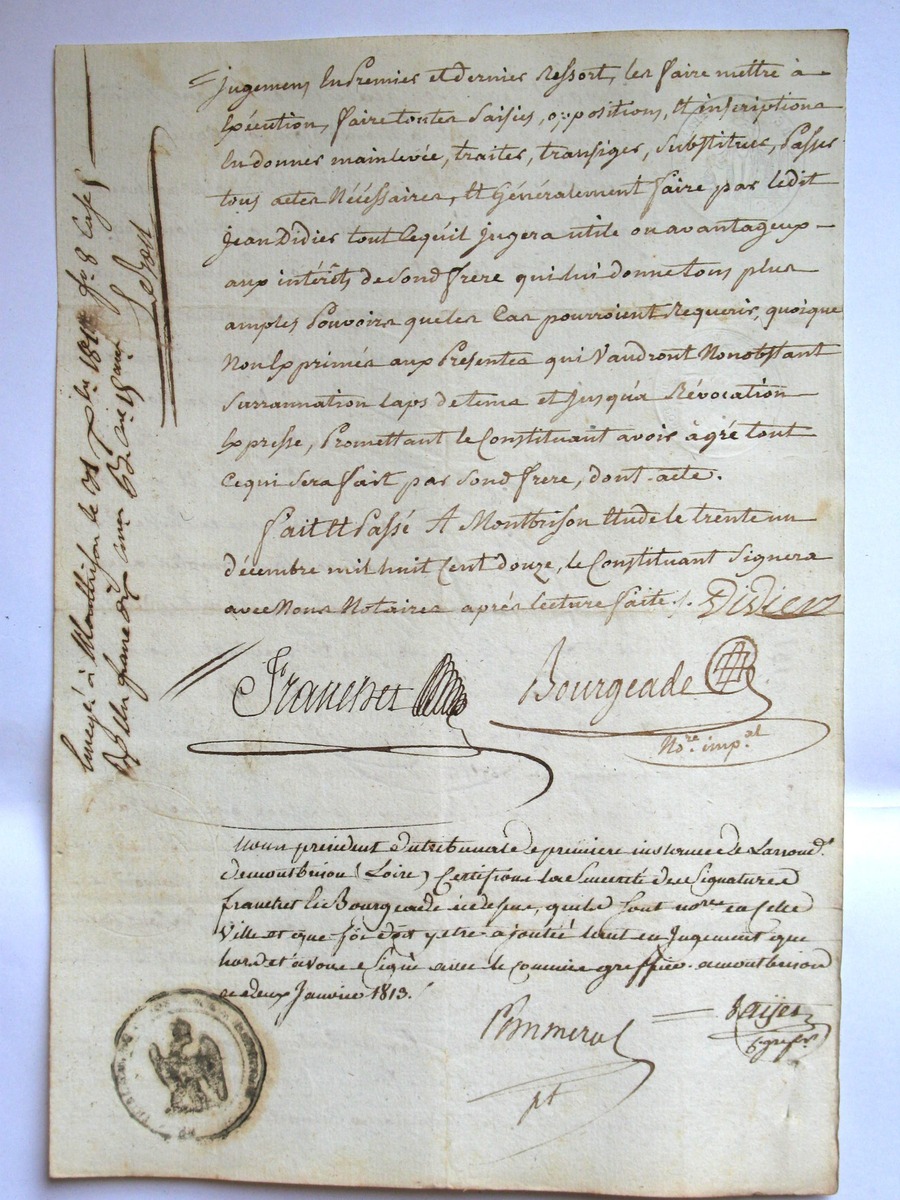 Jugemens en Premier et dernier Ressort, les faire mettre à
Exécution, faire toutes Saisies, oppositions, et inscriptions
en donner mainlevée, traiter, transiger, substituer, Passer
tous actes Nécéssaires, et Généralement faire par ledit
Jean Didier tout cequil Jugera utile ou avantageux
aux intérêts de sond frere qui lui donne tous plus
amples Pouvoirs que les Cas pourroient Requerir, quoique
Non Exprimés aux Présentes qui Vaudront Nonobstant
Surrannation laps de tems et jusqu'a Révocation
Expresse, Promettant le Constituant avoir à gré tout
cequi sera fait par sond frere, dont acte.
Fait et Passé A Montbrison Etude le trente un
décembre mil huit Cent douze, le Constituant Signera
avec Nous Notaires après lecture faite ./. Didier
Franchet Bourgeade
Nore. imp.al
Nous président du tribunal de première instance de Larrond.t
de montbrison (Loire) Certifions la Sincérité des Signatures
franchet et Bourgeade ci dessus, quils sont nores en cette
Ville et que foi doit y etre ajoutée tant en Jugement que
hors et avons Signé avec le commis greffier a montbrison
ce deux Janvier 1813.
Pommerol
pt
greff.r
Enreg.é à Montbrison le 31 Xbre 1812 fo. 8 Case 5